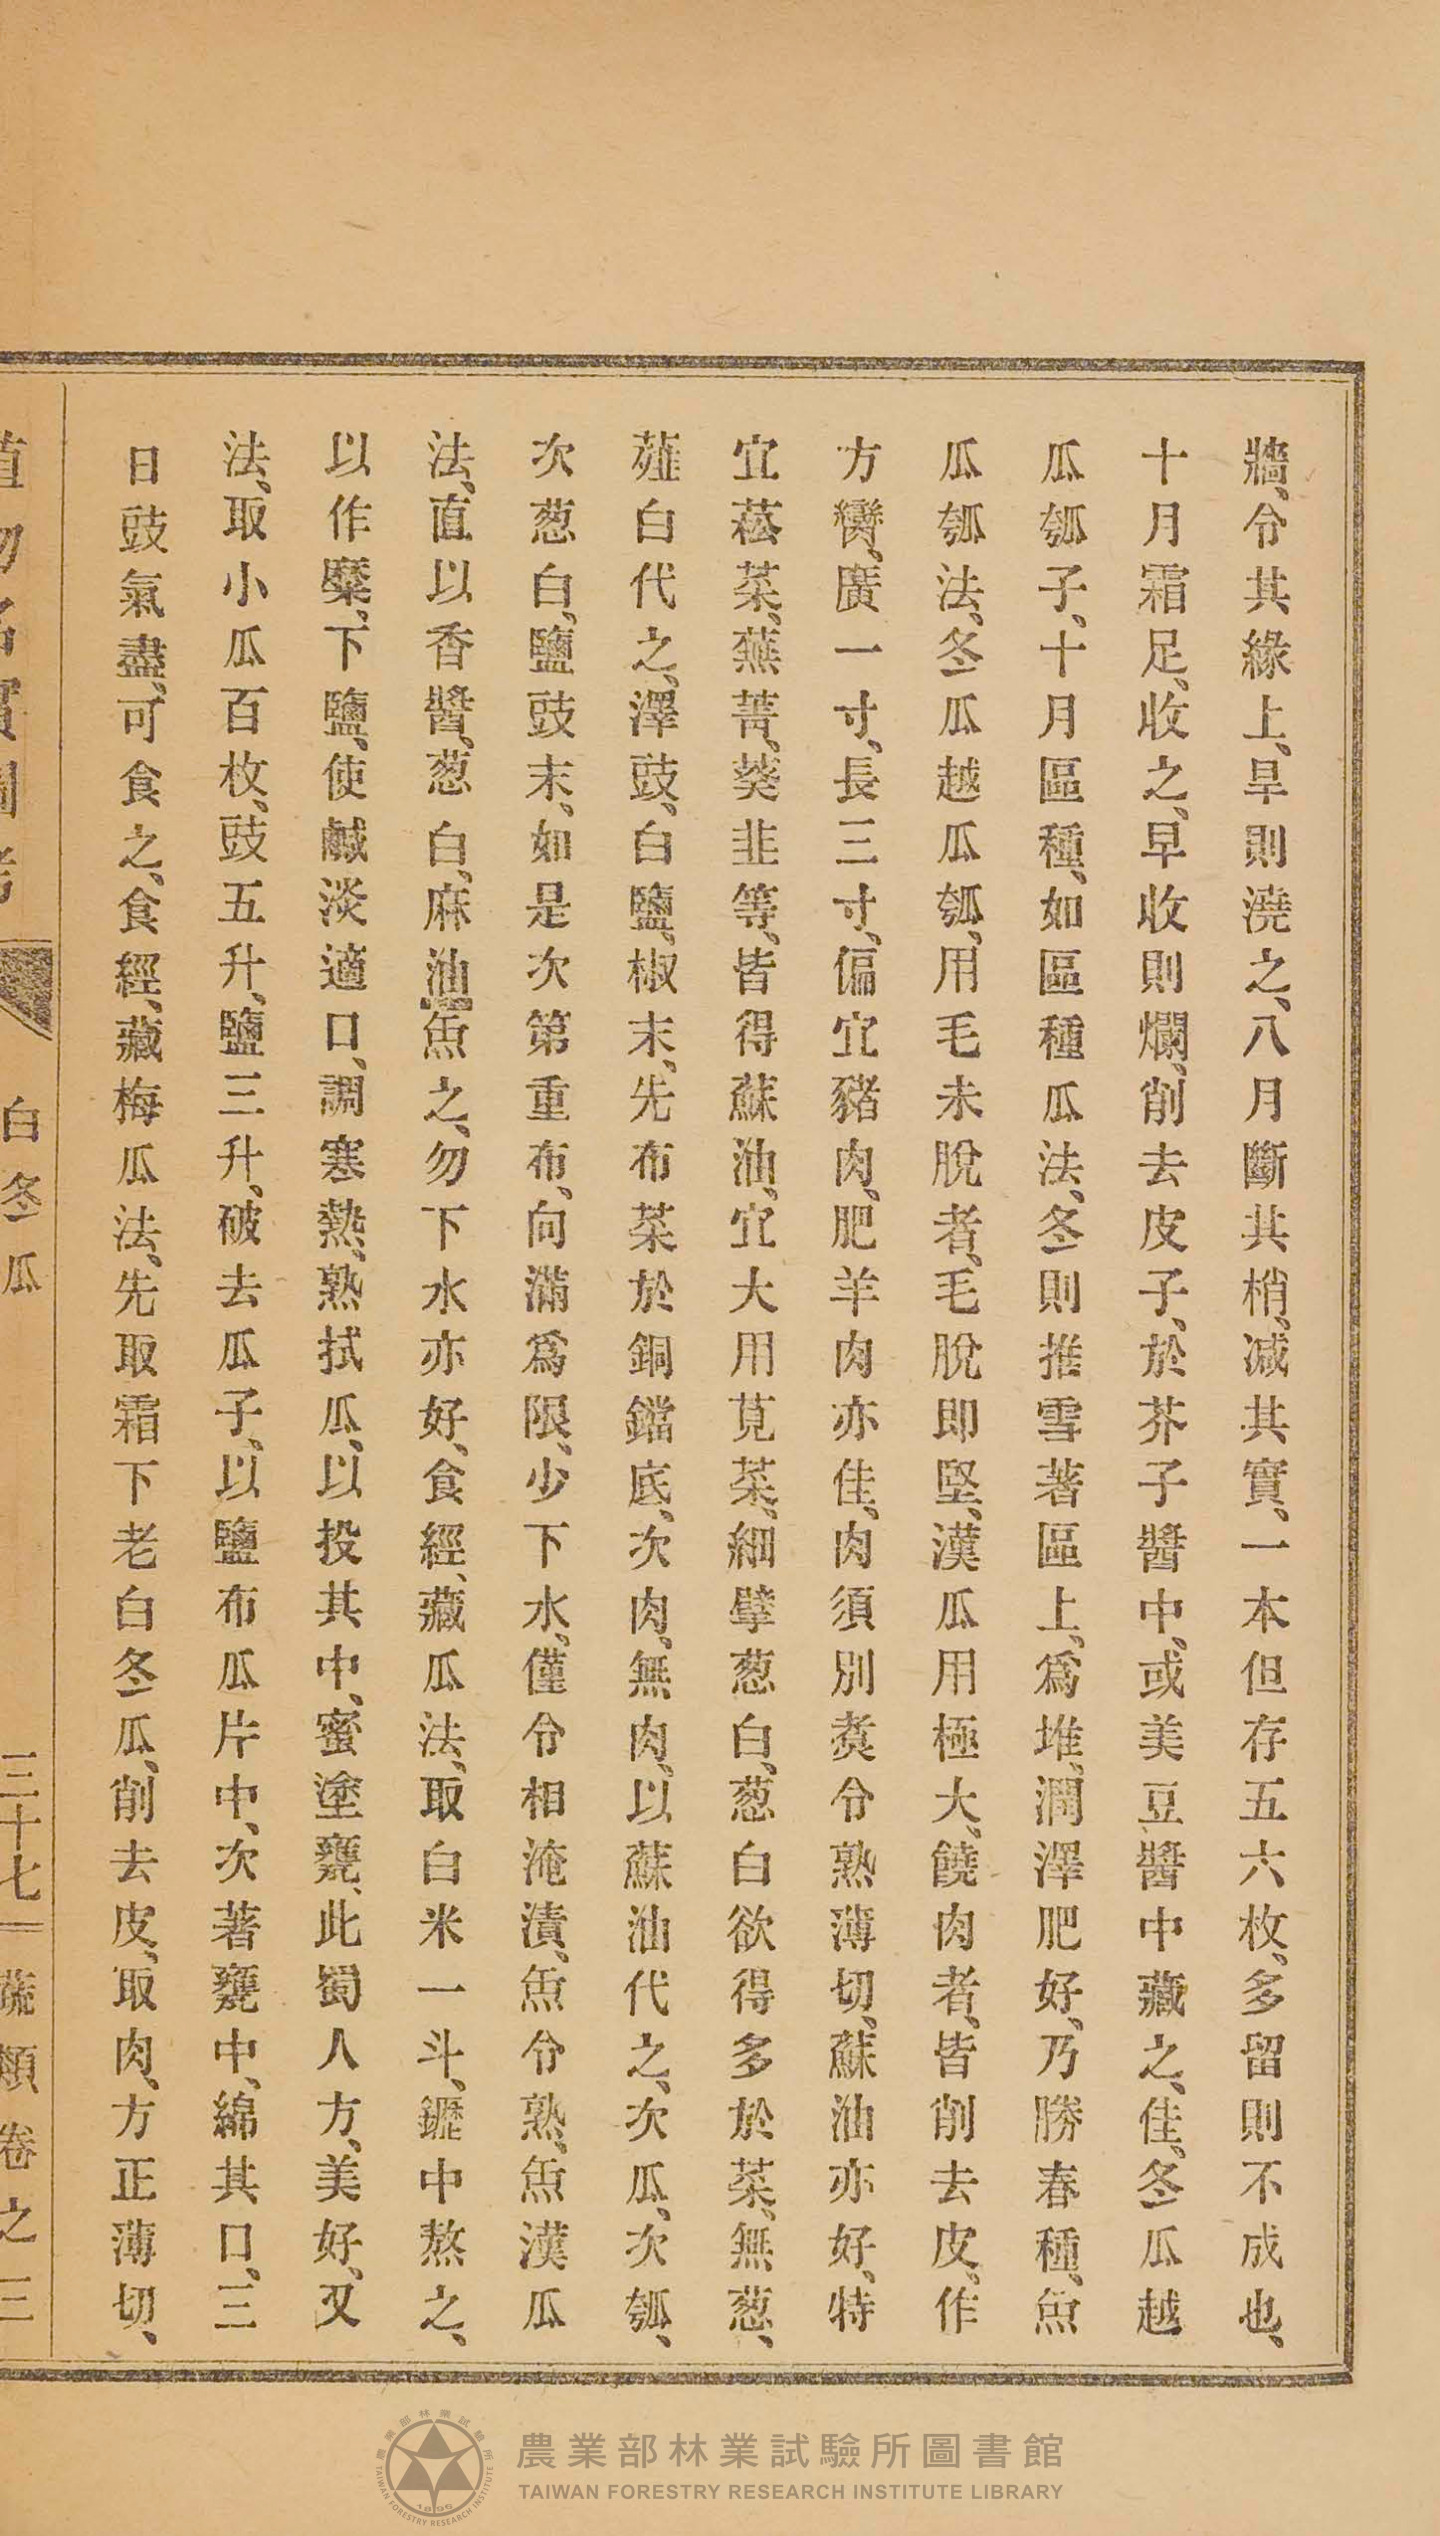 牆、令其緣上、旱則澆之、八月斷其梢、減其實、一本但存五六枚、多留則不成也、
十月霜足、收之、早收則爛、削去皮子、於芥子醬中、或美豆醬中藏之、佳、冬瓜越
瓜瓠子、十月區種、如區種瓜法、冬則推雪著區上、爲堆、潤澤肥好、乃勝春種、缹
瓜瓠法、冬瓜越瓜瓠、用毛未脫者、毛脫即堅、漢瓜用極大、饒肉者、皆削去皮、作
方臠、廣一寸、長三寸、偏宜豬肉、肥羊肉亦佳、肉須別煑令熟薄切、蘇油亦好、特
宜菘菜、蕪菁、葵韭等、皆得蘇油、宜大用莧菜、細擘葱白、葱白欲得多於菜、無葱、
薤白代之、澤豉、白鹽、椒末、先布菜於銅鐺底、次肉、無肉、以蘇油代之、次瓜、次瓠、
次葱白、鹽豉末、如是次第重布、向滿爲限、少下水、僅令相淹漬、缹令熟、缹漢瓜
法、直以香醬、葱白、麻油、缹之、勿下水亦好、食經、藏瓜法、取白米一斗、䥶中熬之、
以作糜、下鹽、使鹹淡適口、調寒熱、熟拭瓜、以投其中、蜜塗甕、此蜀人方、美好、又
法、取小瓜百枚、豉五升、鹽三升、破去瓜子、以鹽布瓜片中、次著甕中、綿其口、三
日豉氣盡、可食之、食經、藏梅瓜法、先取霜下老白冬瓜、削去皮、取肉、方正薄切、
植物名實圖考 白冬瓜 三十七 蔬類卷之三
農業部林業試驗所圖書館
TAIWAN FORESTRY RESEARCH INSTITUTE LIBRARY
農業部林業試驗所
TAIWAN FORESTRY RESEARCH INSTITUTE
1895